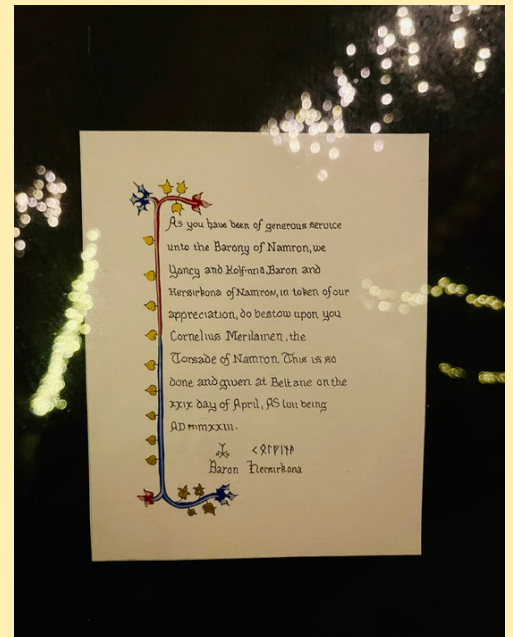 As you have been of generous service
unto the Barony of Namron, we
Yancy and Kolfinna, Baron and
Hersirkona of Namron, in token of our
appreciation, do bestow upon you
Cornelius Merilamen, the
Torsade of Namron. This is so
done and given at Beltane on the
xxix day of April, AS lvii being
AD mmxxiii.
ᚲᛟᛚᚠᛁᚾᚨ
Baron Hersirkona